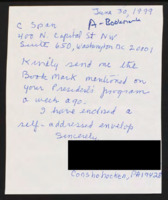 June 30, 1999
A-Bookmark
C Span
400 N. Capital St NW
Suite 650, Washington Dc 20001
Kindly send me the
Book Mark mentioned on
your President's program
a week ago.
I have enclosed a
self-addressed envelop
Sincerely
Conshohocken, PA 19428